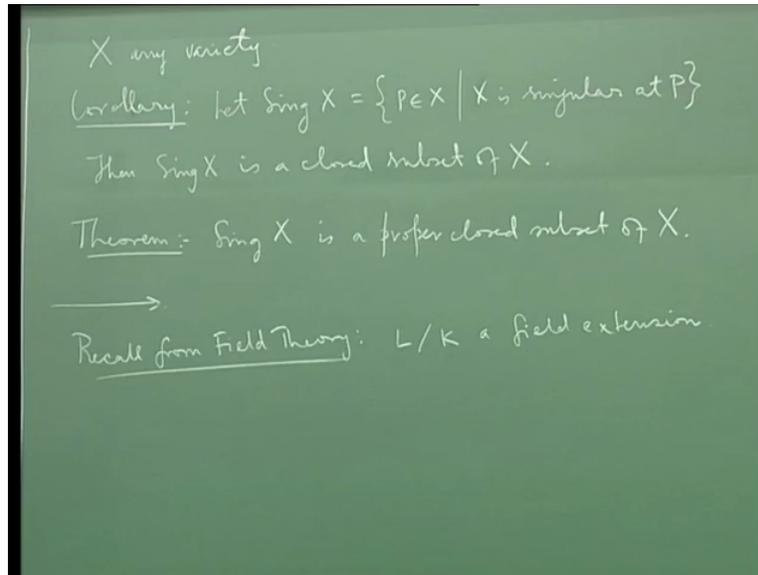 X any variety
Corollary: Let Sing X = {P ∈ X | X is singular at P}
Then Sing X is a closed subset of X.
Theorem:- Sing X is a proper closed subset of X.
Recall from Field Theory: L/K a field extension